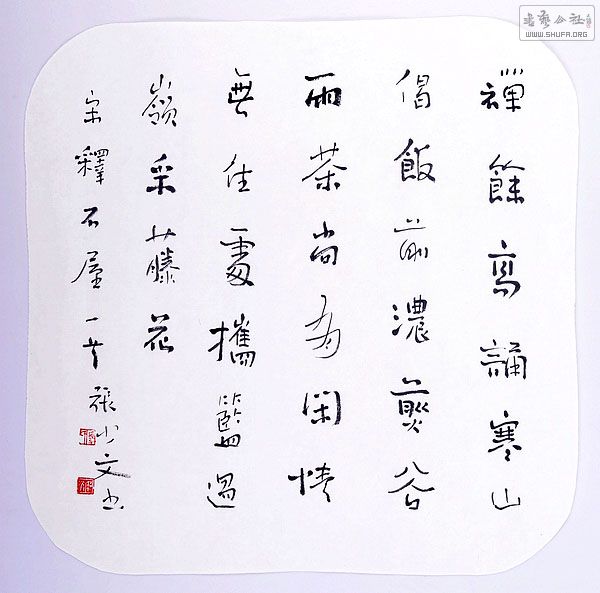 禪餘高誦寒山
偈飯前濃煎谷
雨茶尚有閑情
無住處攜籃過
嶺采藤花
宋釋石屋一首 張少文书
書藝公社
WWW.SHUFA.ORG